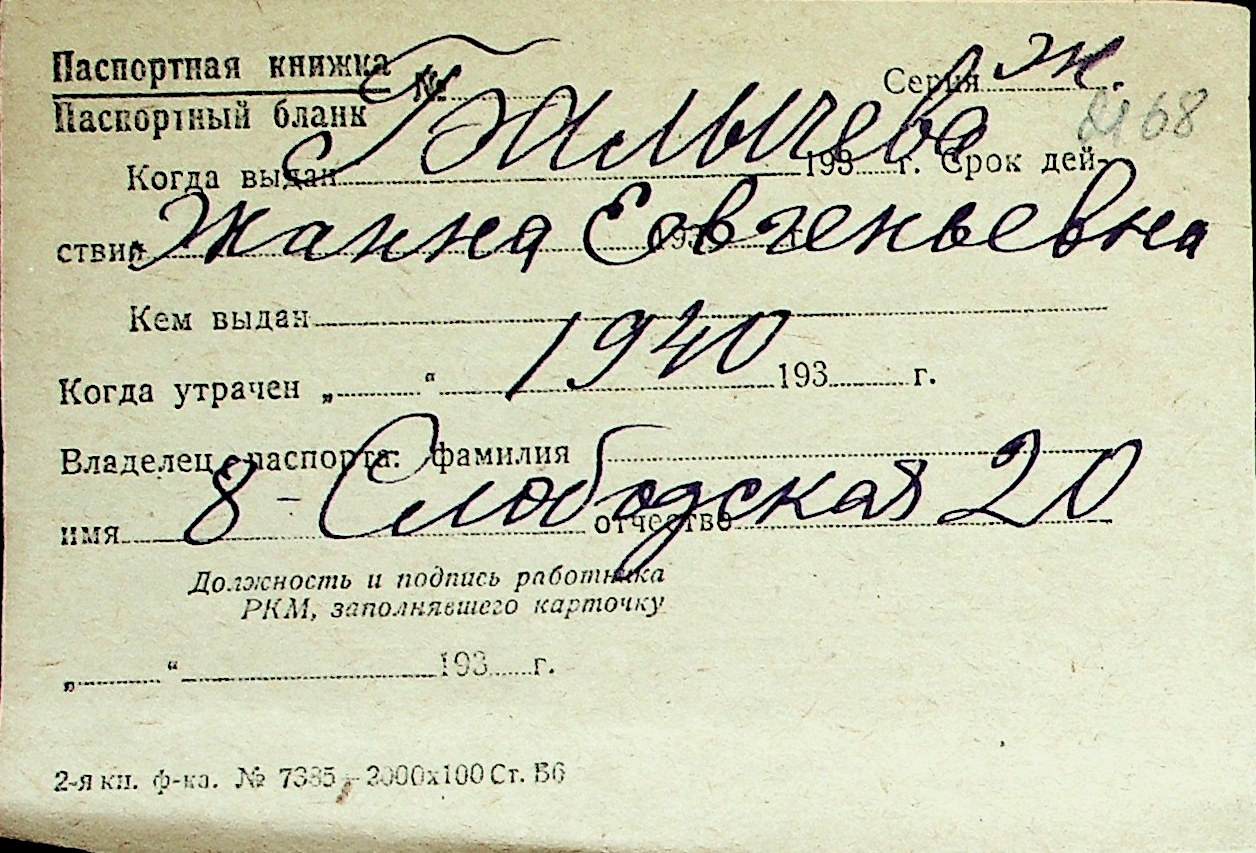 Паспортная книжка № Серия ж.
Паспортный бланк
Балычева 2168
Когда выдан 193 г. Срок дей-
Жанна Евгеньевна
ствия 193 г.
Кем выдан
1940
Когда утрачен „ “ 193 г.
Владелец паспорта: фамилия
8 - Слободская 20
имя отчество
Должность и подпись работника
РКМ, заполнявшего карточку
„ “ 193 г.
2-я кн. ф-ка. № 7385 - 2000х100 Ст. Б6